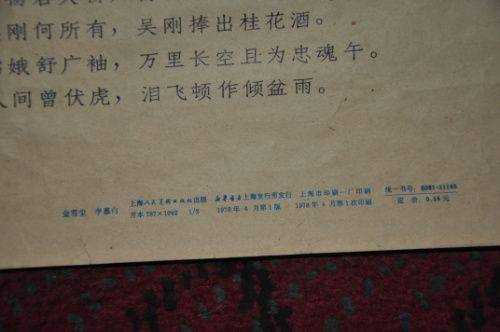 刚何所有，吴刚捧出桂花酒。
娥舒广袖，万里长空且为忠魂午。
人间曾伏虎，泪飞顿作倾盆雨。
金雪尘 李慕白
上海人民美术出版社出版 新华书店上海发行所发行 上海市印刷一厂印刷 统一书号：8081·11146
开本787×1092 1/3 1978年4月第1版 1978年4月第1次印刷 定价：0.14元